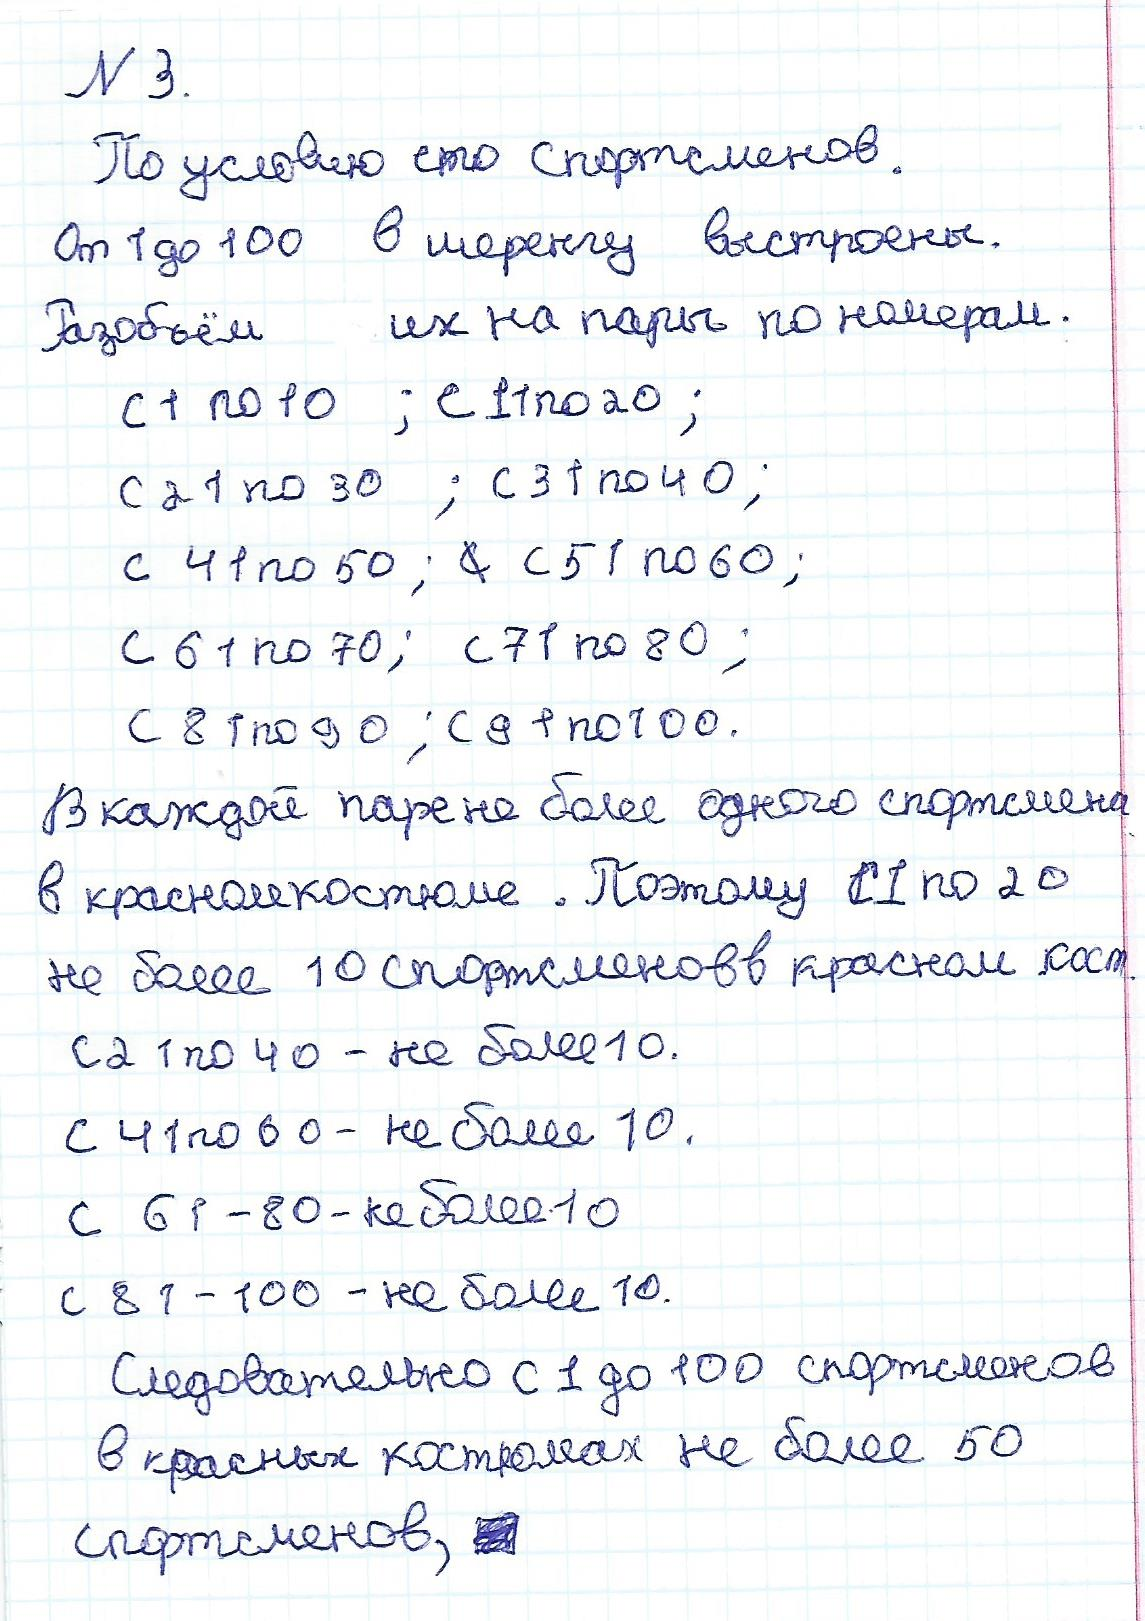 N 3.
По условию сто спортсменов.
От 1 до 100 в шеренгу выстроены.
Разобьём их на пары по номерам.
с 1 по 10 ; с 11 по 20 ;
с 21 по 30 ; с 31 по 40 ;
с 41 по 50 ; с 51 по 60 ;
с 61 по 70 ; с 71 по 80 ;
с 81 по 90 ; с 91 по 100.
В каждой паре не более одного спортсмена
в красном костюме . Поэтому с 1 по 20
не более 10 спортсменов в красном кост.
с 21 по 40 - не более 10.
с 41 по 60 - не более 10.
с 61 - 80 - не более 10
с 81 - 100 - не более 10.
Следовательно с 1 до 100 спортсменов
в красных костюмах не более 50
спортсменов,